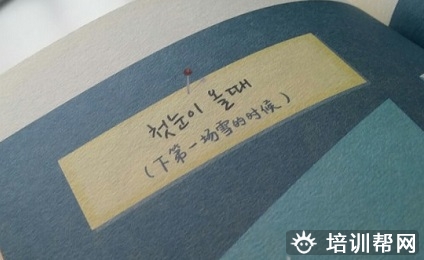 첫눈이 올 때
(下第一场雪的时候)
培训帮网